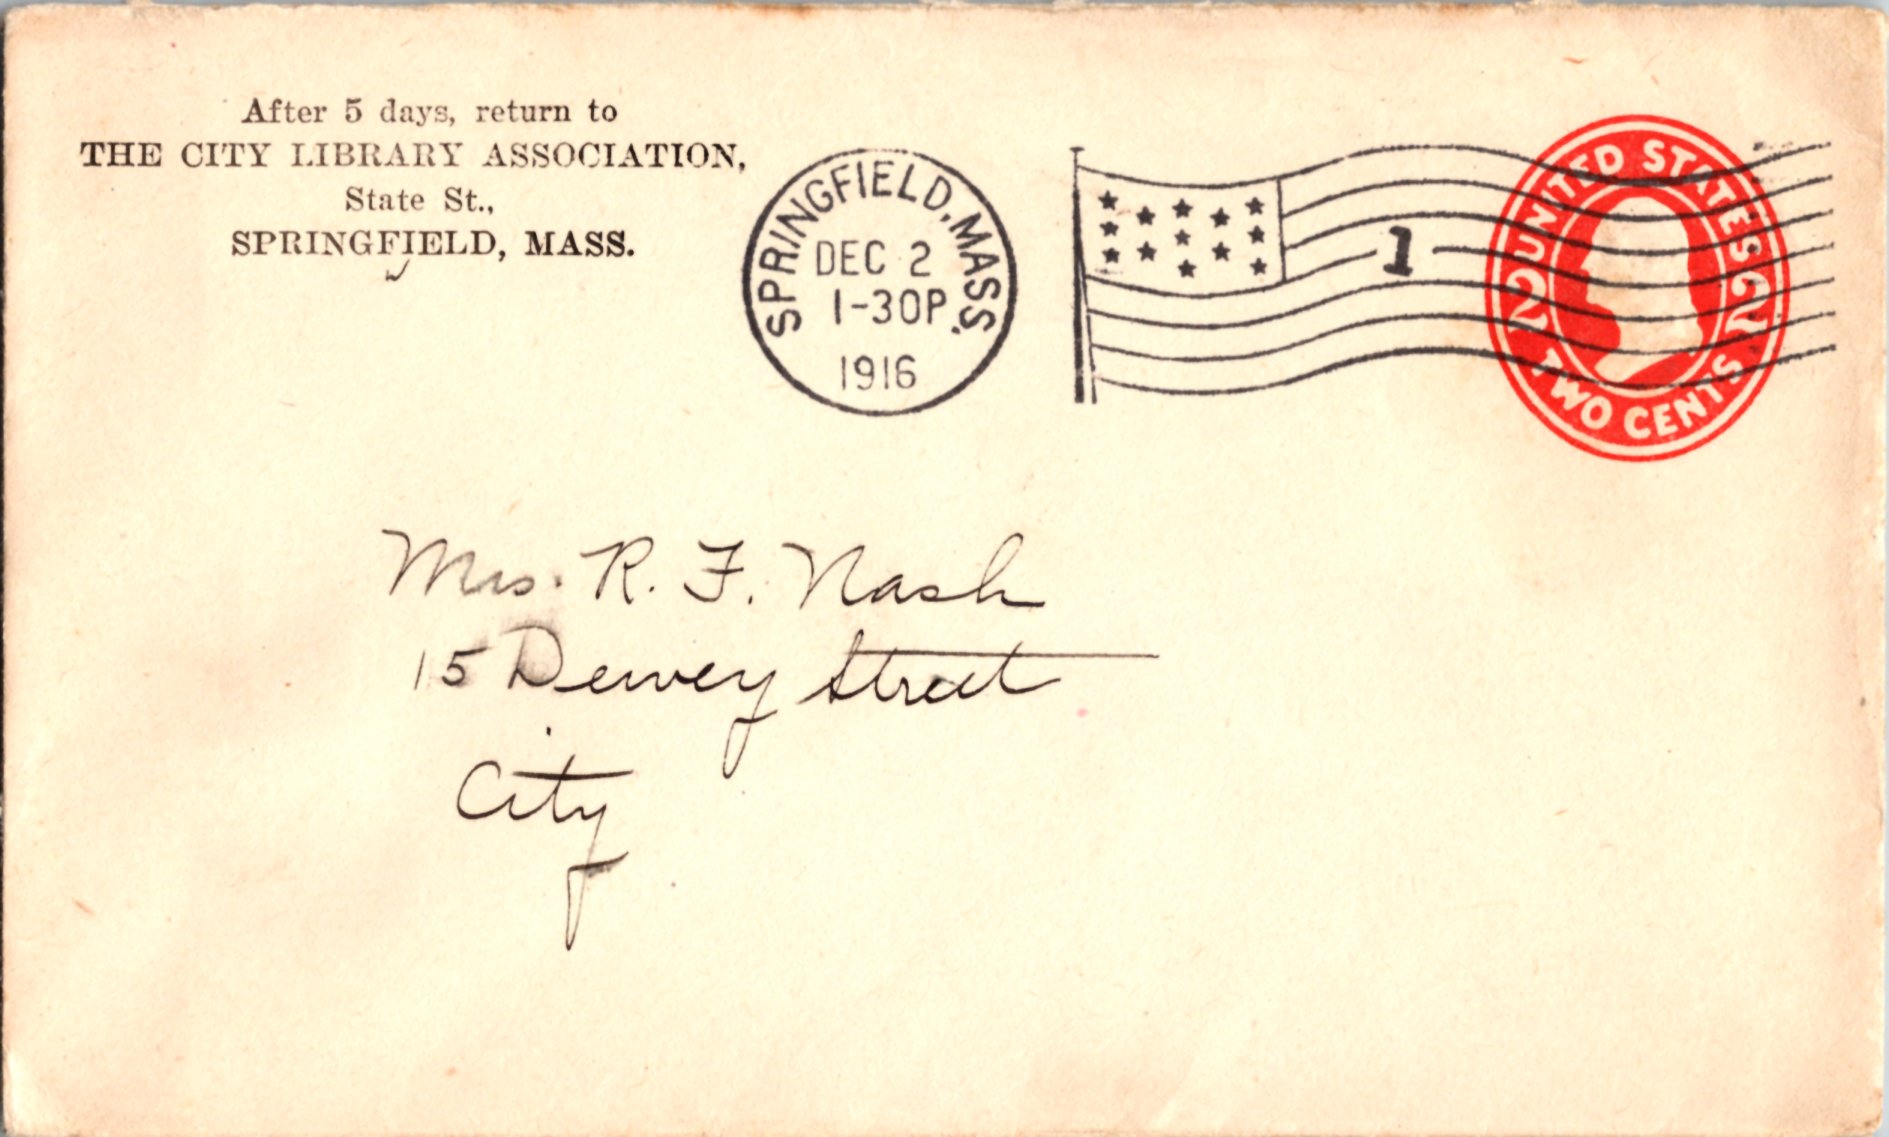 After 5 days, return to
THE CITY LIBRARY ASSOCIATION,
State St.,
SPRINGFIELD, MASS.
SPRINGFIELD, MASS.
DEC 2
1-30P
1916
1
UNITED STATES
2 2
TWO CENTS
Mrs. R. F. Nash
15 Dewey Street
City